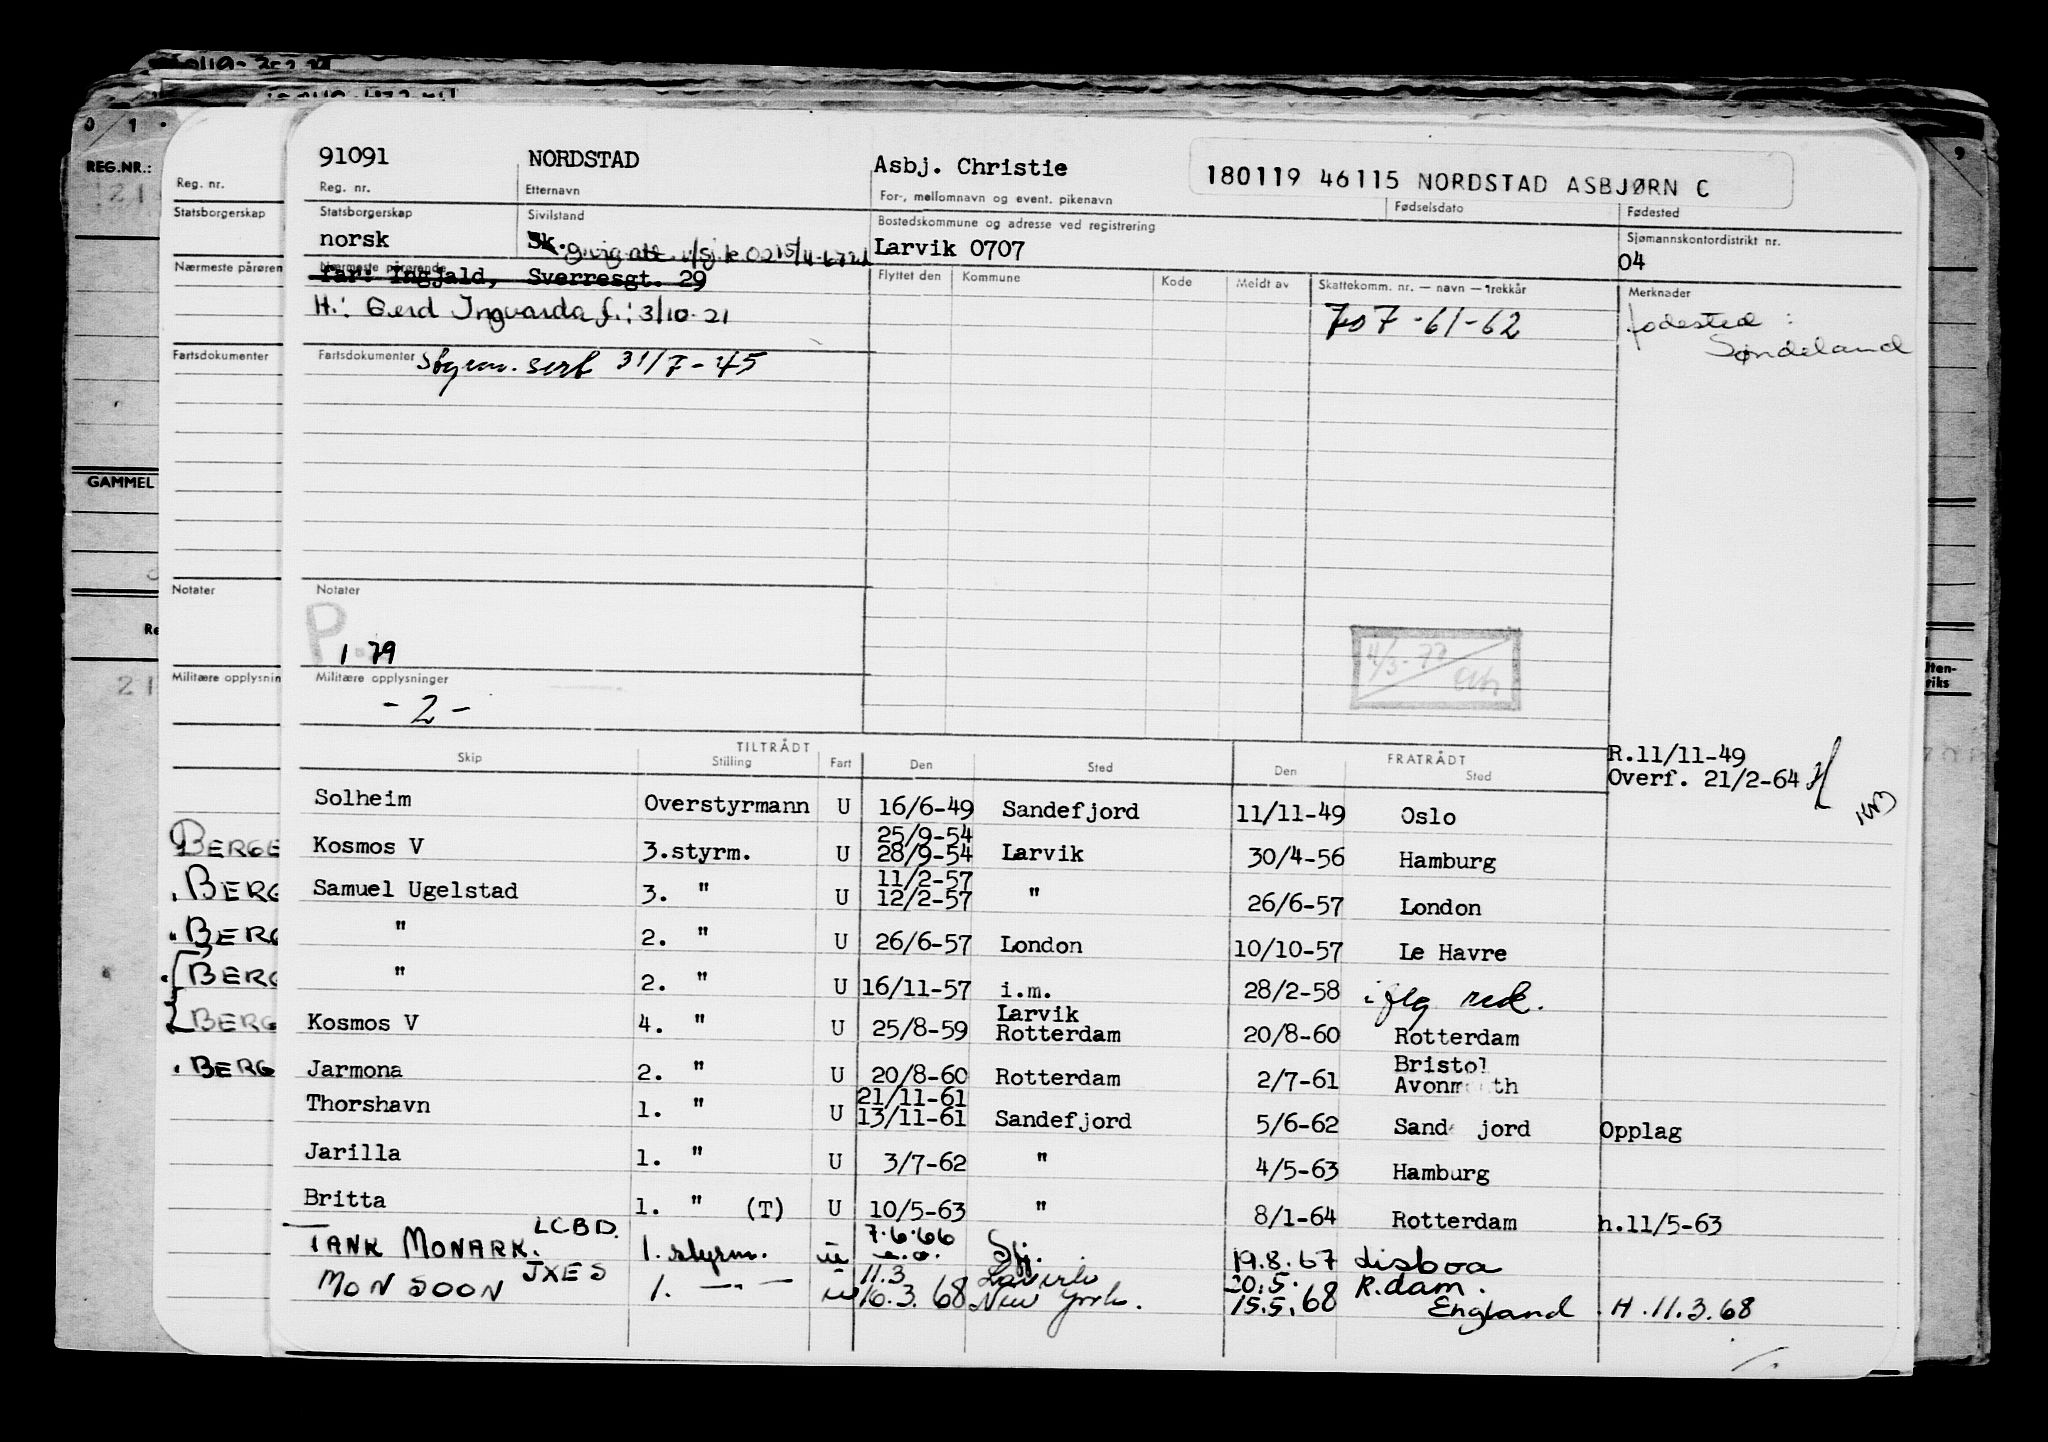 REG.NR.:
GAMMEL
Reg. nr.
Statsborgerskap
Nærmeste pårøren
Fartsdokumenter
Notater
Militære opplysnin
BERGE
BERG
BERG
BERG
BERG
BERG
91091 NORDSTAD Asbj. Christie 180119 46115 NORDSTAD ASBJØRN C
Reg. nr. Etternavn For-, mellomnavn og event. pikenavn Fødselsdato Fødested
Statsborgerskap Sivilstand Bostedskommune og adresse ved registrering Sjømannskontordistrikt nr.
norsk Sk. Larvik 0707 04
Nærmeste pårørende Flyttet den Kommune Kode Meldt av Skattekomm. nr. — navn — trekkår Merknader
Far: Ingjald, Sverresgt. 29
H.: Gerd Ingvarda f.: 3/10-21 707-61-62 fødested:
Søndeland
Fartsdokumenter Styrm. sert 31/7-45
Notater
P.
1 79
4/3-77
Militære opplysninger
- 2 -
TILTRÅDT FRATRÅDT
Skip Stilling Fart Den Sted Den Sted
R.11/11-49
Overf. 21/2-64
Solheim Overstyrmann U 16/6-49 Sandefjord 11/11-49 Oslo
25/9-54
Kosmos V 3.styrm. U 28/9-54 Larvik 30/4-56 Hamburg
11/2-57
Samuel Ugelstad 3. " U 12/2-57 " 26/6-57 London
" 2. " U 26/6-57 London 10/10-57 Le Havre
" 2. " U 16/11-57 i.m. 28/2-58 iflg red.
Larvik
Kosmos V 4. " U 25/8-59 Rotterdam 20/8-60 Rotterdam
Bristol
Jarmona 2. " U 20/8-60 Rotterdam 2/7-61 Avonmouth
21/11-61
Thorshavn 1. " U 13/11-61 Sandefjord 5/6-62 Sandefjord Opplag
Jarilla 1. " U 3/7-62 " 4/5-63 Hamburg
Britta 1. " (T) U 10/5-63 " 8/1-64 Rotterdam h.11/5-63
7.6.66
TANK MONARK. LCBD. 1. styrm. u e.o. Sfj. 19.8.67 Lisboa
11.3 Larvik 20.5. R.dam.
MONSOON JXES 1. —"— u 16.3.68 New York. 15.5.68 England H.11.3.68